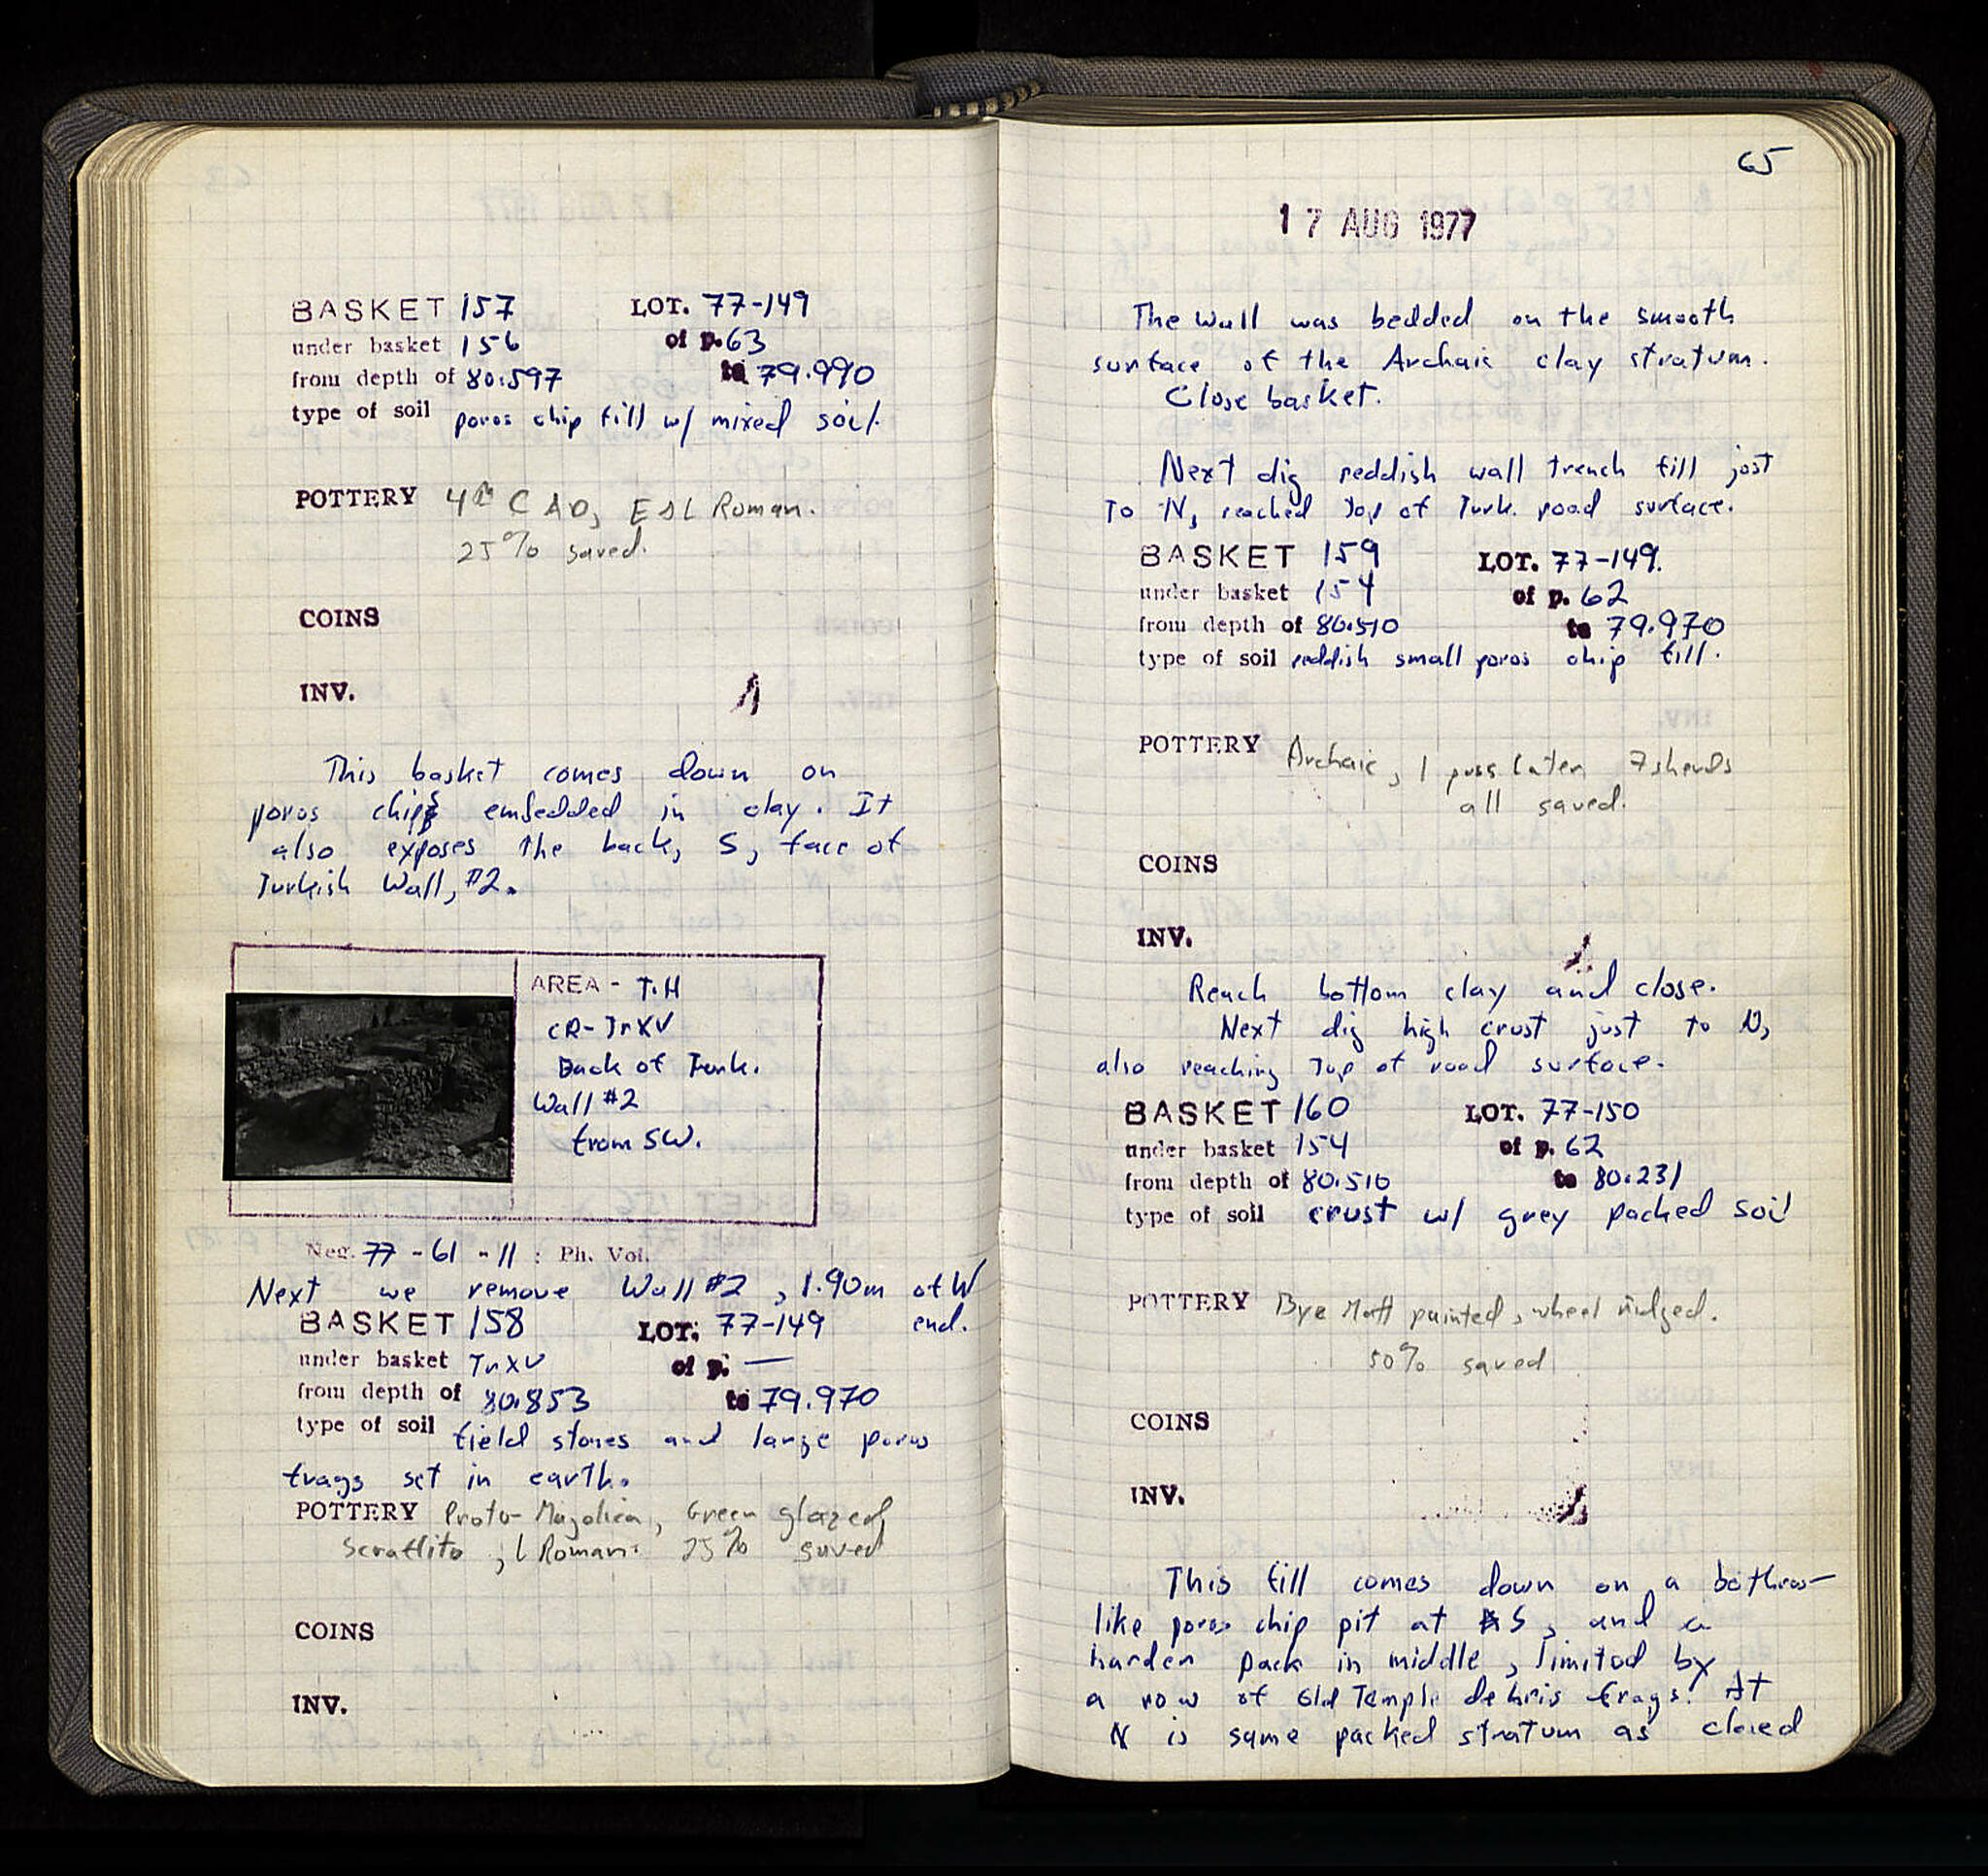 BASKET 157 LOT. 77-149
under basket 156 of p. 63
from depth of 80.597 to 79.990
type of soil poros chip fill w/ mixed soil.
POTTERY 4th C AD, E & L Roman.
25% saved.
COINS
INV.
This basket comes down on
poros chips embedded in clay. It
also exposes the back, S, face of
Turkish Wall, #2.
AREA - T.H
CR- TrXV
Back of Turk.
Wall #2
from SW.
Neg. 77 - 61 - 11 : Ph. Vol.
Next we remove Wall #2, 1.90m at W
end.
BASKET 158 LOT. 77-149
under basket TrXV of p. —
from depth of 80.853 to 79.970
type of soil field stones and large poros
frags set in earth.
POTTERY Proto-Majolica, Green glazed
Scraffito, L Roman. 25% saved
COINS
INV.
65
17 AUG 1977
The Wall was bedded on the smooth
surface of the Archaic clay stratum.
Close basket.
Next dig reddish wall trench fill just
To N, reached Top of Turk. road surface.
BASKET 159 LOT. 77-149.
under basket 154 of p. 62
from depth of 80.510 to 79.970
type of soil reddish small poros chip fill.
POTTERY Archaic, 1 poss later 7 sherds
all saved.
COINS
INV.
Reach bottom clay and close.
Next dig high crust just to N,
also reaching Top of road surface.
BASKET 160 LOT. 77-150
under basket 154 of p. 62
from depth of 80.510 to 80.231
type of soil crust w/ grey packed soil
POTTERY Byz Matt painted, wheel ridged.
50% saved
COINS
INV.
This fill comes down on a bothros-
like poros chip pit at S, and a
harder pack in middle, limited by
a row of Old Temple debris frags. At
N is same packed stratum as closed